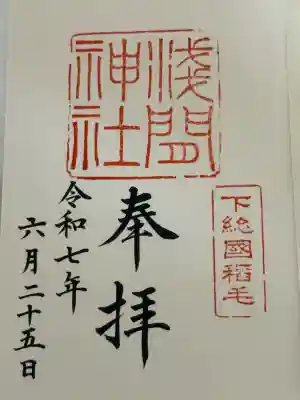 浅間神社
下総國稲毛
奉拝
令和七年
六月二十五日